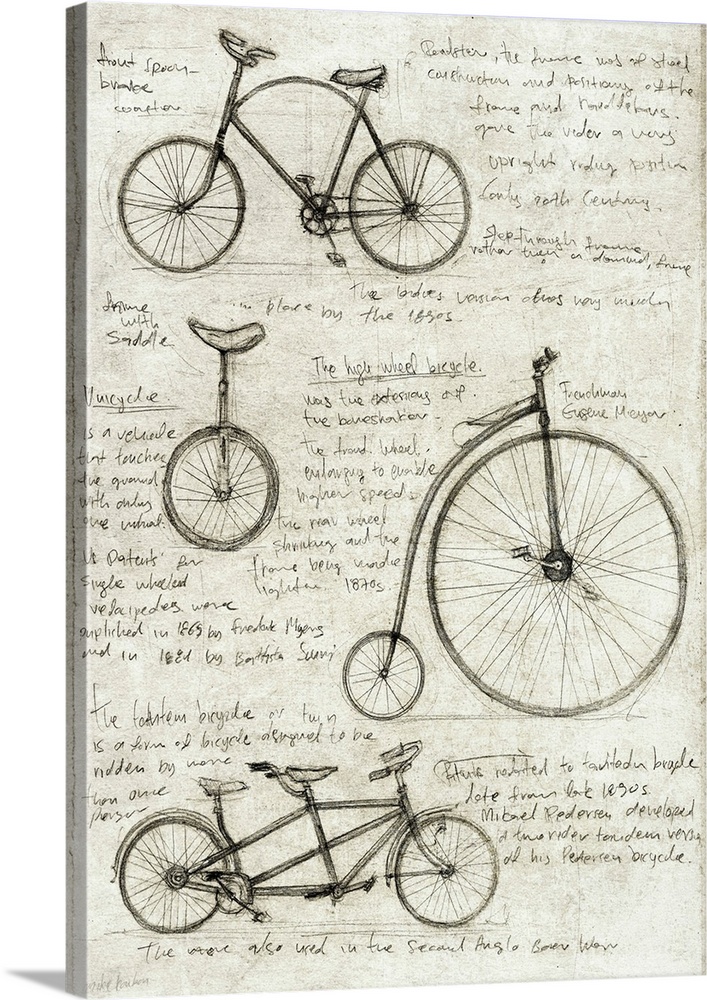 front spoon
brake
Roadster, the frame was of steel
construction and positioning of the
frame and handlebars
gave the rider a very
upright riding position
Early 20th Century.
Step-through frame
rather than a diamond frame
The ladies version was very much
in place by the 1890s.
frame
with
Saddle
Unicycle
is a vehicle
that touches
the ground
with only
one wheel.
US Patents for
single wheeled
velocipedes were
published in 1869 by Fredrik Myers
and in 1881 by Battista Scuri
The high wheel bicycle.
was the extension of
the boneshaker
the front wheel
enlarging to enable
higher speeds
the rear wheel
shrinking and the
frame being made
lighter. 1870s.
Frenchman
Eugene Meyer
The tandem bicycle or twin
is a form of bicycle designed to be
ridden by more
than one
person
Patents related to tandem bicycle
date from late 1890s
Mikael Pedersen developed
a two rider tandem version
of his Pedersen bicycle.
The were also used in the Second Anglo Boer War